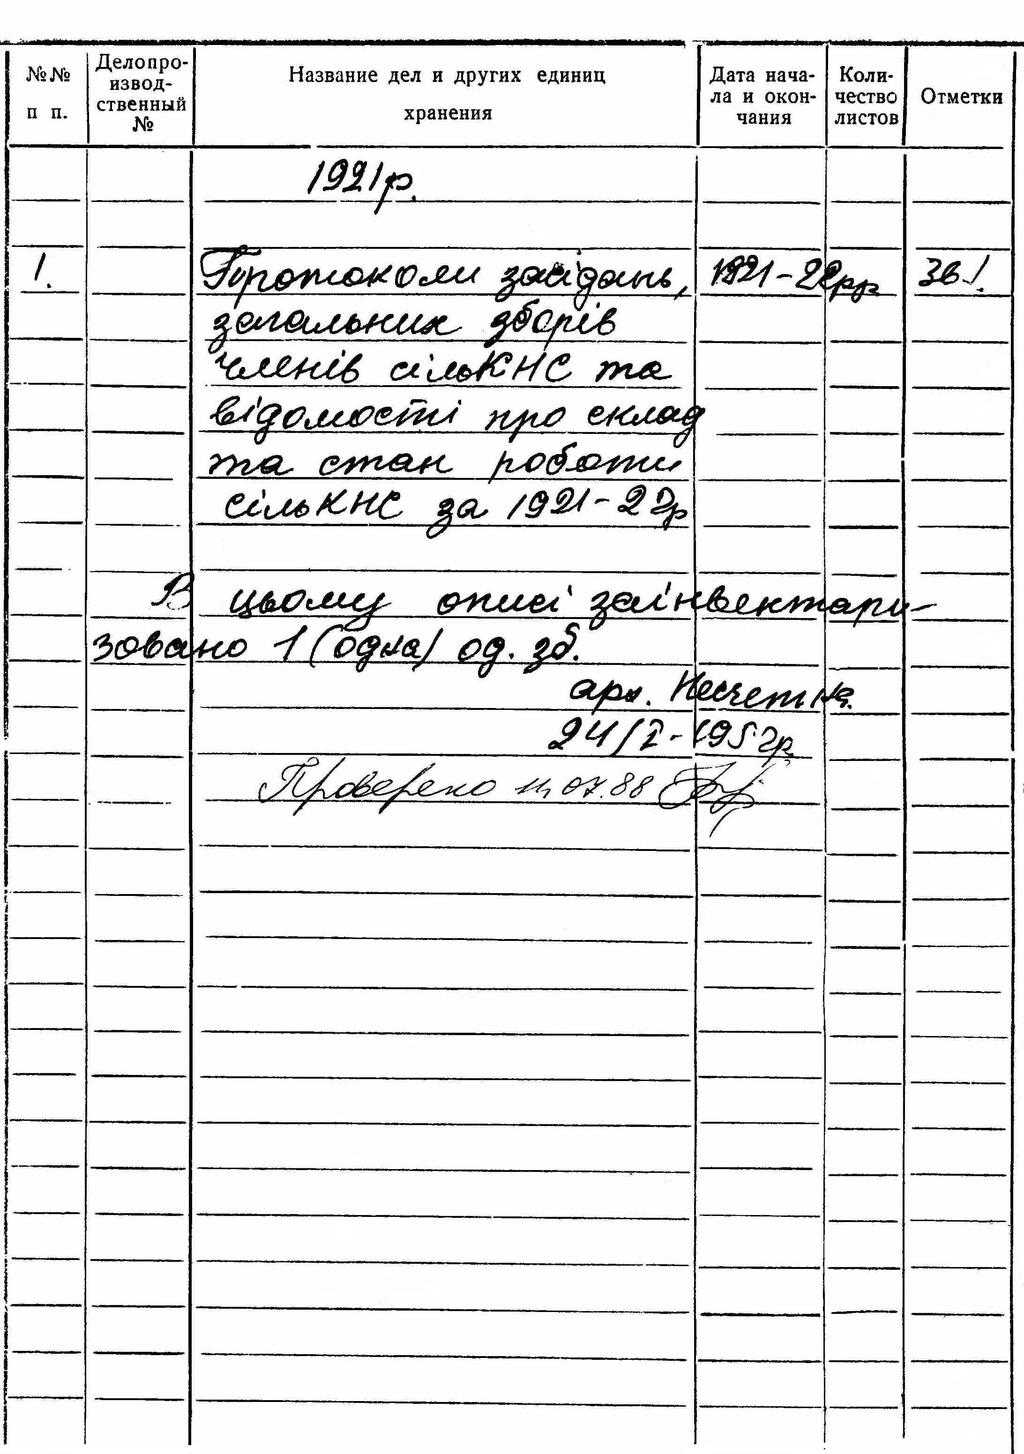 №№ п п.
Делопроизвод-
ственный №
Название дел и других единиц
хранения
Дата нача-
ла и окон-
чания
Коли-
чество
листов
Отметки
1921р.
1. Протоколи засідань, 1921-22рр 36!
загальних зборів
членів сільКНС та
відомості про склад
та стан роботи
сільКНС за 1921-22р
В цьому описі заінвентари-
зовано 1 (одна) од. зб.
арх.
24/I-1957р.
Проверено 11.07.88